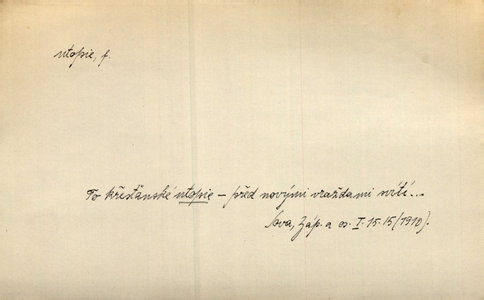 utopie, f.
To křesťánské utopie – před novými vraždami svítí...
Sova, Záp. a os. I. 15. 15 (1910).